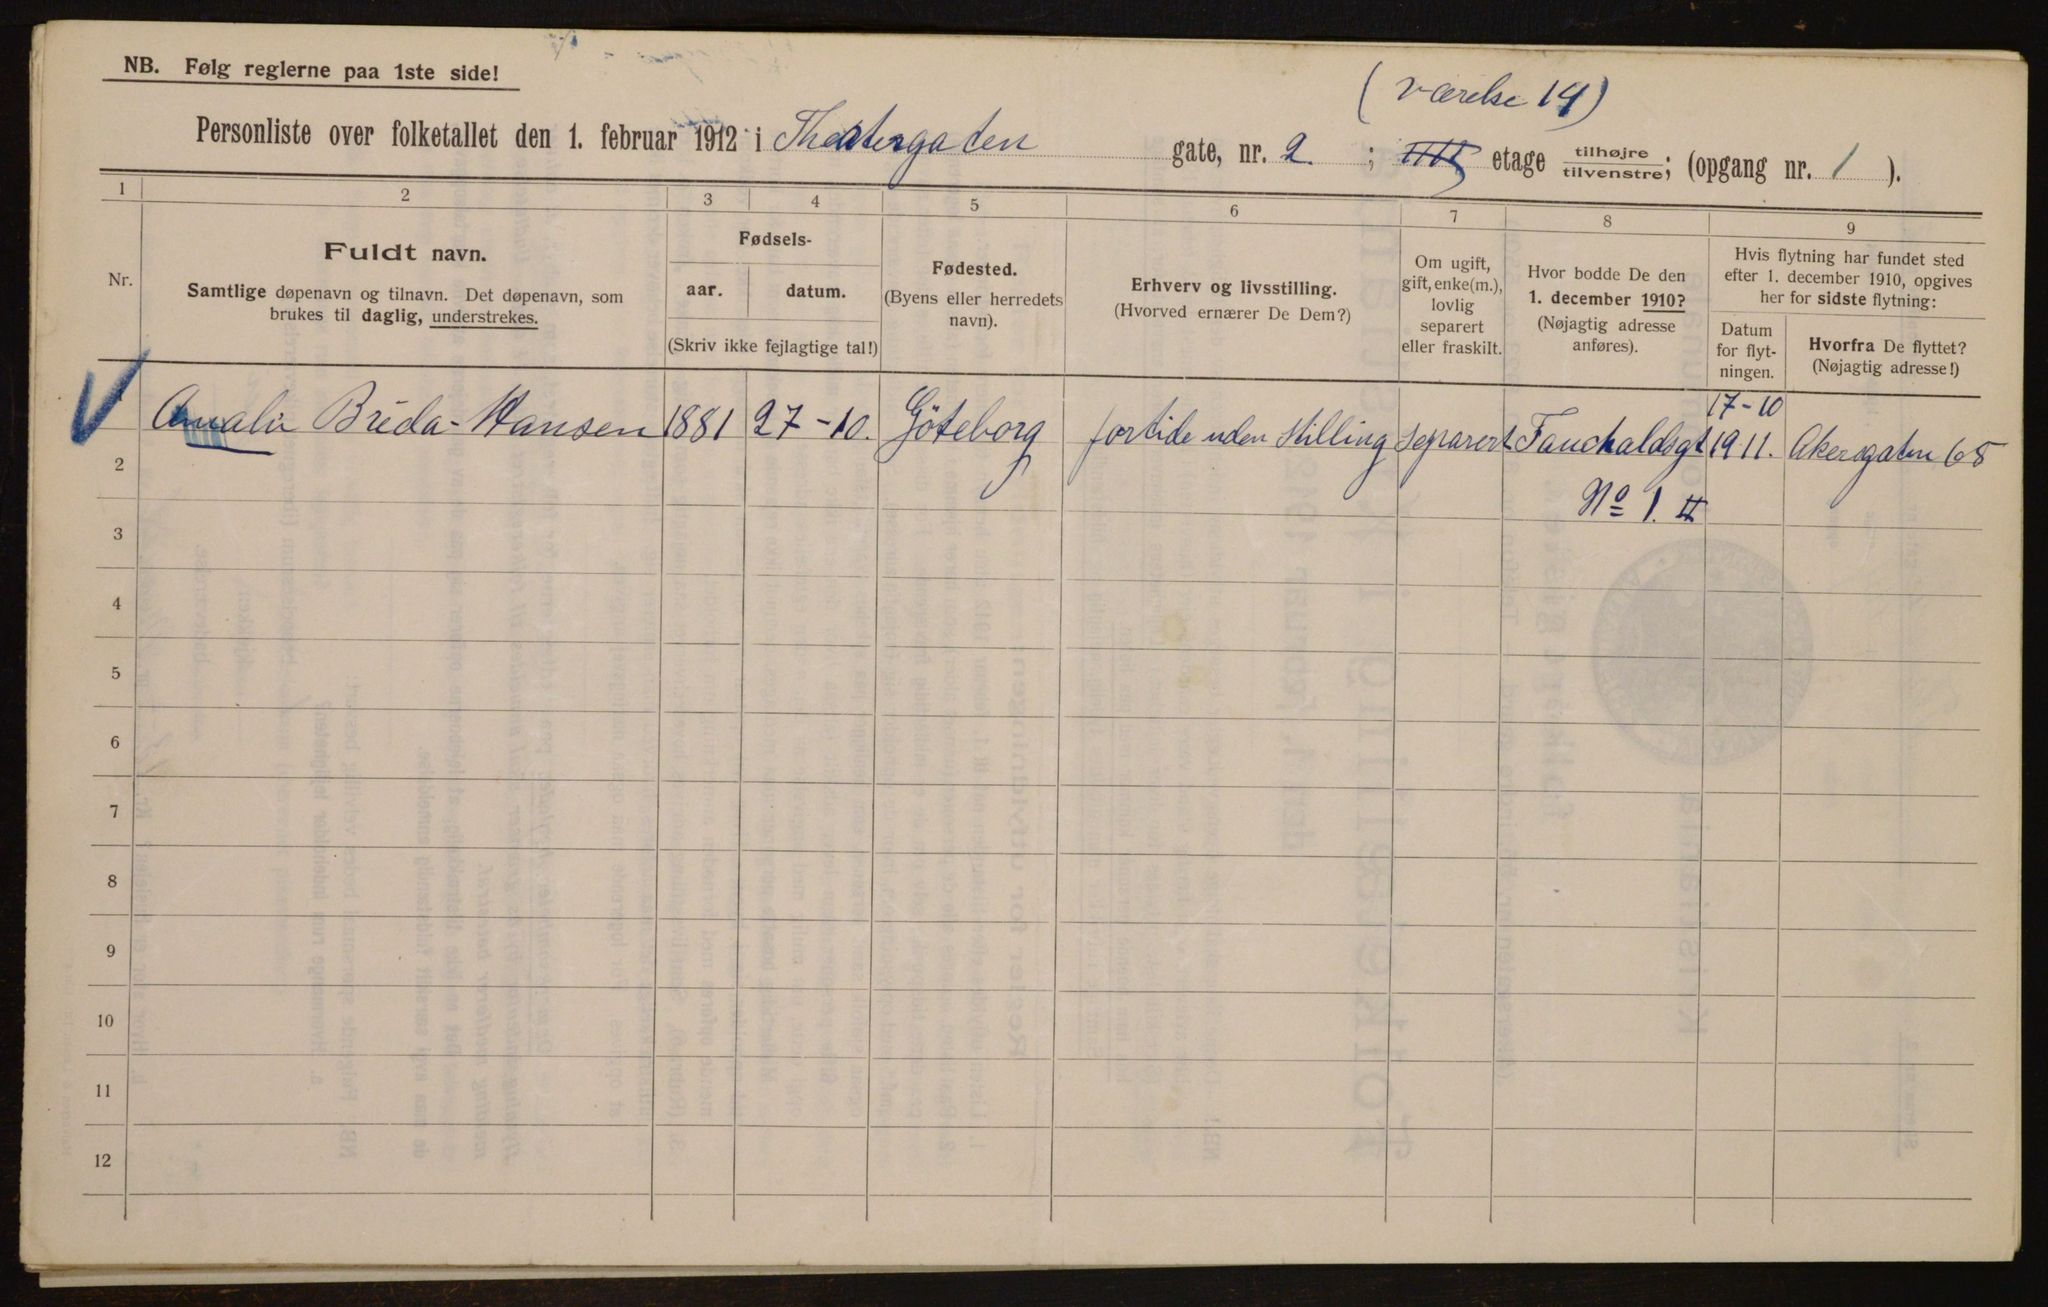 NB. Følg reglerne paa 1ste side!
(værelse 14)
Personliste over folketallet den 1. februar 1912 i Theatergaten gate, nr. 2. ; IIII etage tilhøjre/tilvenstre; (opgang nr. 1 ).
1 2 3 4 5 6 7 8 9
Nr.
Fuldt navn.
Samtlige døpenavn og tilnavn. Det døpenavn, som
brukes til daglig, understrekes.
Fødsels-
aar. datum.
(Skriv ikke fejlagtige tal!)
Fødested.
(Byens eller herredets
navn).
Erhverv og livsstilling.
(Hvorved ernærer De Dem?)
Om ugift,
gift, enke(m.),
lovlig
separert
eller fraskilt.
Hvor bodde De den
1. december 1910?
(Nøjagtig adresse
anføres).
Hvis flytning har fundet sted
efter 1. december 1910, opgives
her for sidste flytning:
Datum
for flyt-
ningen.
Hvorfra De flyttet?
(Nøjagtig adresse!)
Amalie Breda-Hansen 1881 27-10. Göteborg fortide uden Stilling separert Fauchaldsgt No 1. II 17-10 1911. Akersgaten 68
2
3
4
5
6
7
8
9
10
11
12